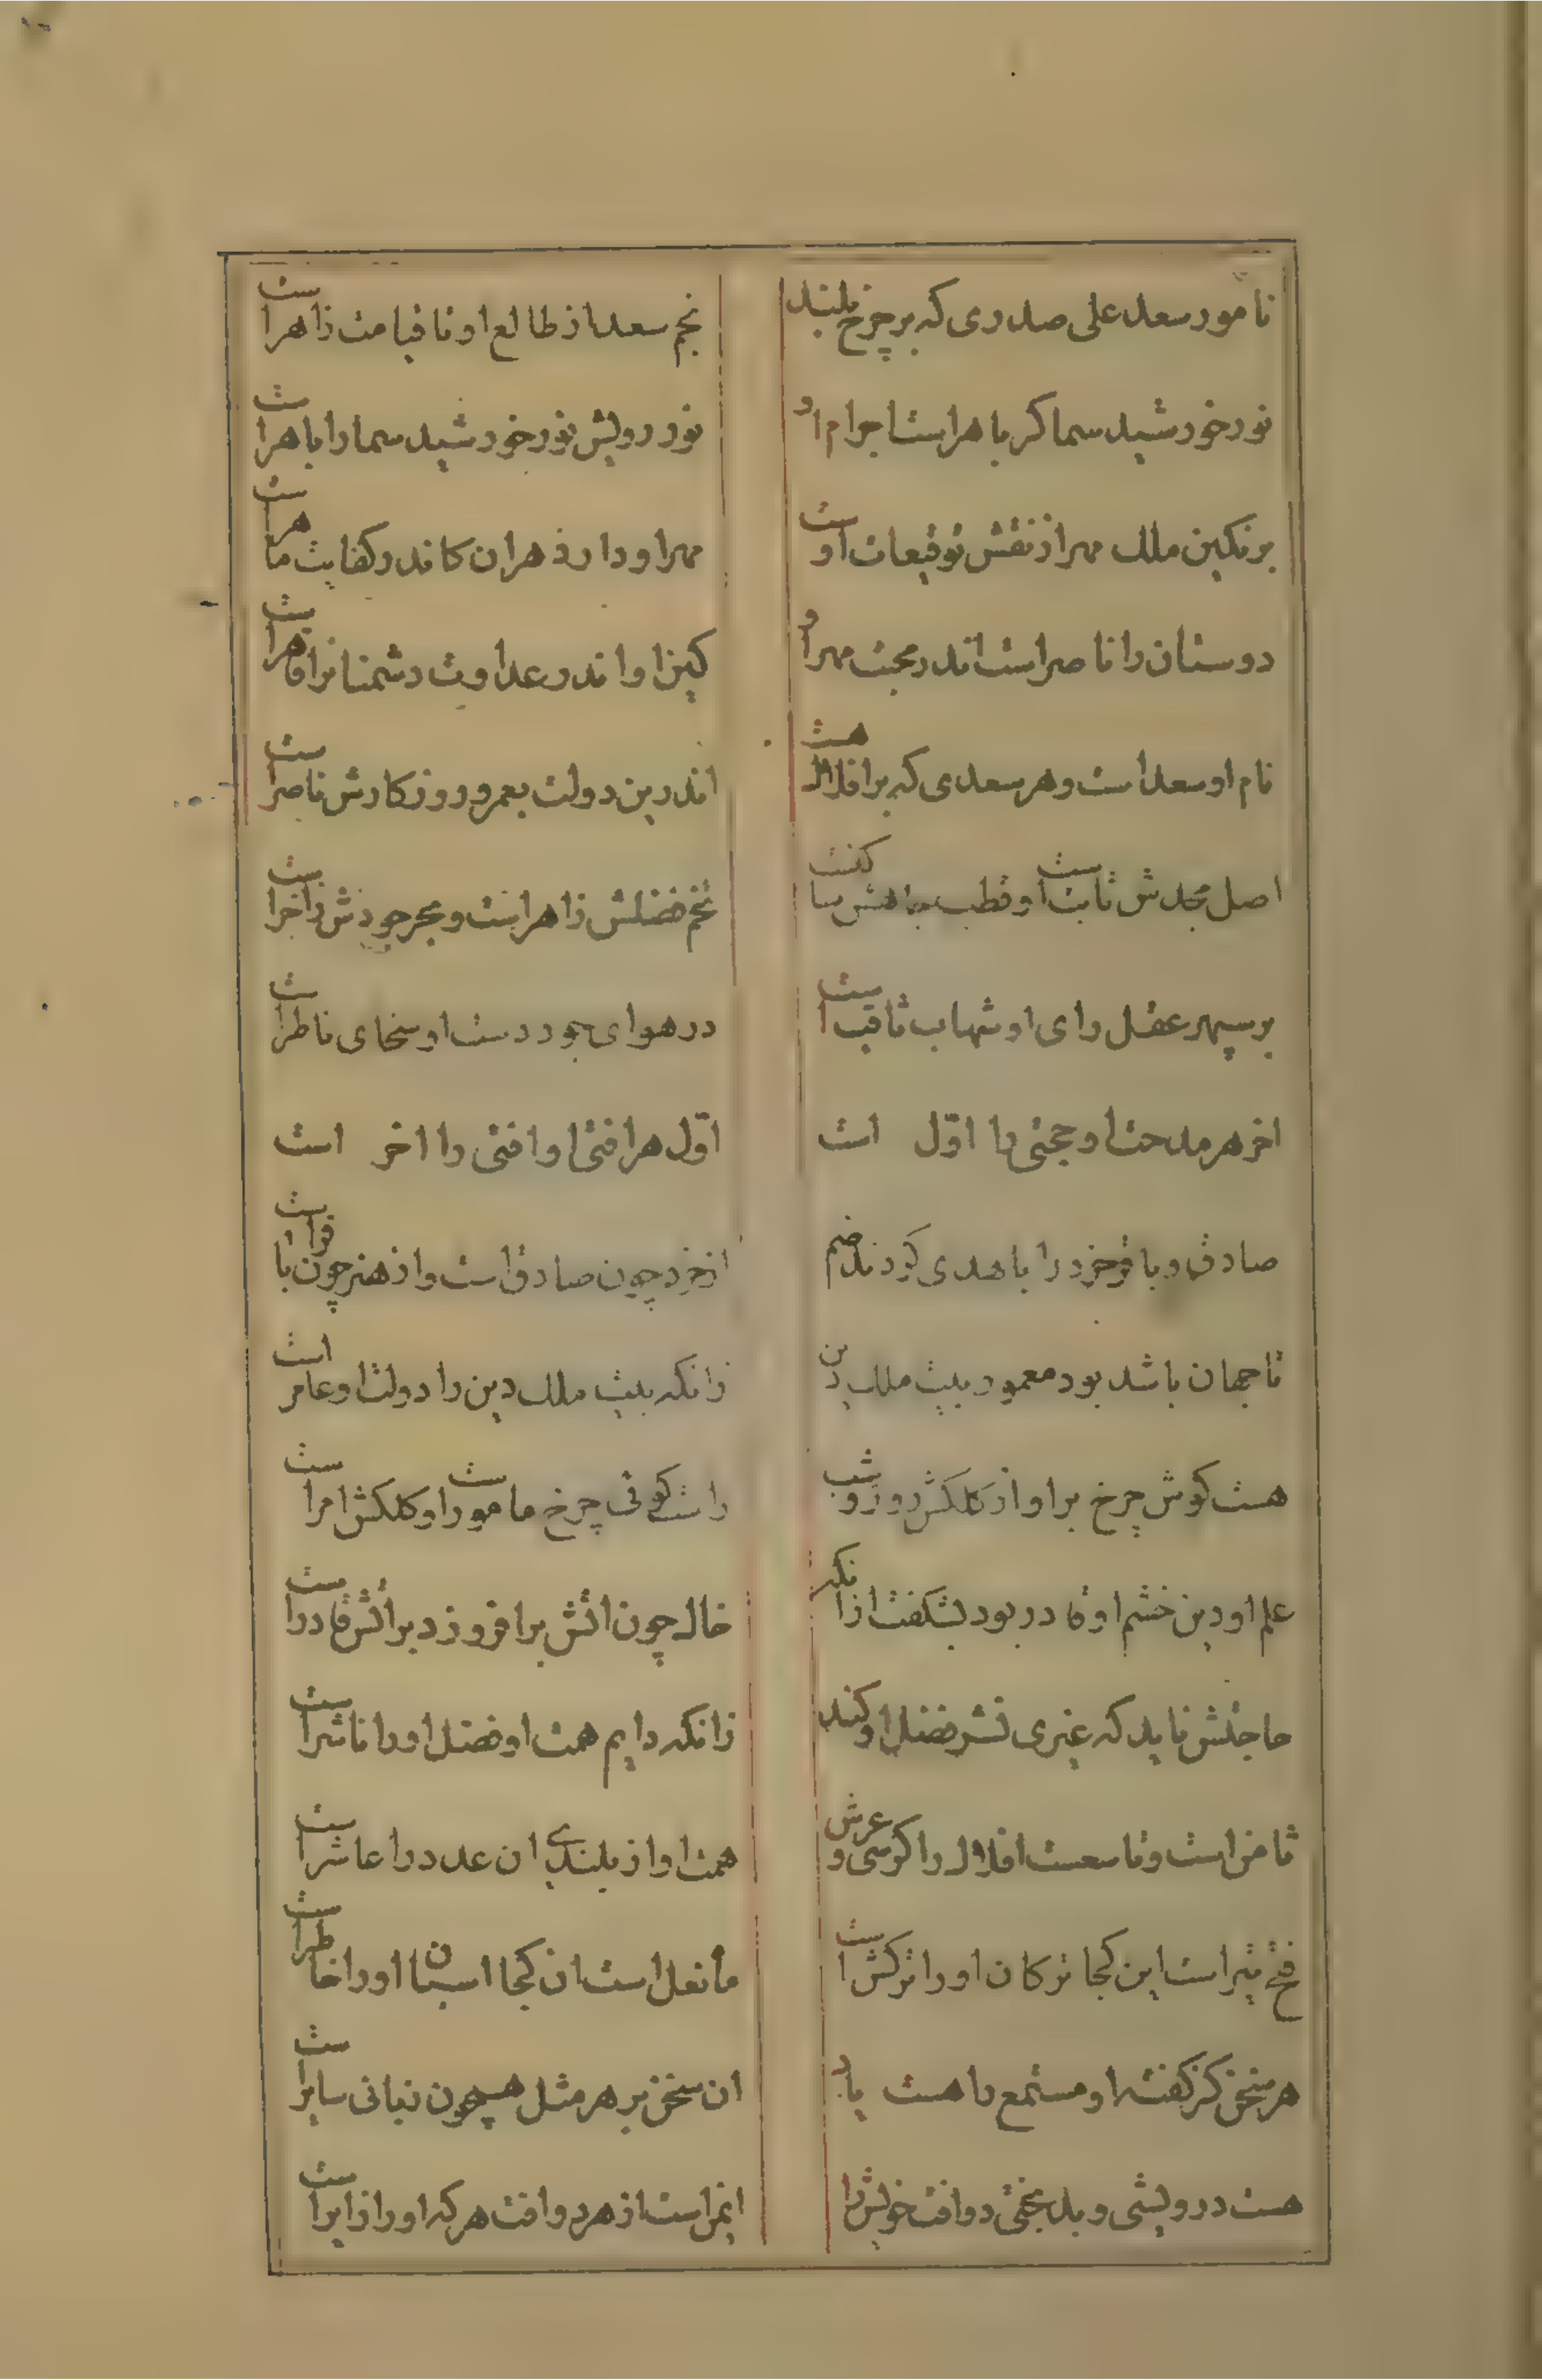 نامور سعد علی صدری که بر چرخ بلند
نجم سعد از طالع او تا قیامت زاهر است
نور خورشید سما کر باهر است اجرام او
نور رویش نور خورشید سما را باهر است
بر نکین ملک مهر از نقش توقیعات اوست
مهر او دارد هر ان کاندر کفایت ماهر است
دوستان را ناصر است اندر محبت مهر او
کین او اندر عداوت دشمنانرا قاهر است
نام او سعد است و هر سعدی که بر افلاک هست
اندرین دولت بعمر و روزکارش ناصر است
اصل مجدش ثابت است و قطب
تخم فضلش زاهر است و بحر جودش زاخر است
بر سپهر عقل رای او شهاب ثاقب است
در هوای جود دست او سخای ناطر است
اخر هر مدحت او حجتی را اول است
اول هر افتی او افتی را اخر است
صادق و باقر خرد را با هدی کردند ضم
از خرد چون صادق است و از هنر چون باقر است
تا جهان باشد بود معمور بیت ملک دین
زانکه بیت ملک دین را دولت او عامر است
هست کوش چرخ بر اواز کلکش روز و شب
راست کوئی چرخ مامور است او کلکش امر است
علم او دین خشم او قادر بود بشکفت ازانکه
خاک چون اتش برافروزد بر اتش قادر است
حاجتش ناید که غیری نشر فضل او کند
زانکه دایم همت او فضل او را ناشر است
ثامن است و تاسعست افلاک را کرسی و عرش
همت او از بلندی ان عدد را عاشر است
فتح تیر است این کجا ترکان او را ترکش است
ما نعل است ان کجا اسبان او را خاطر است
هر سخن کز کفته او مستمع را هست یاد
ان سخن بر هر مثل همچون نباتی سایر است
هست درویشی و بدبختی دو افت خویش را
ایمن است از هر دو افت هر که او را زایر است